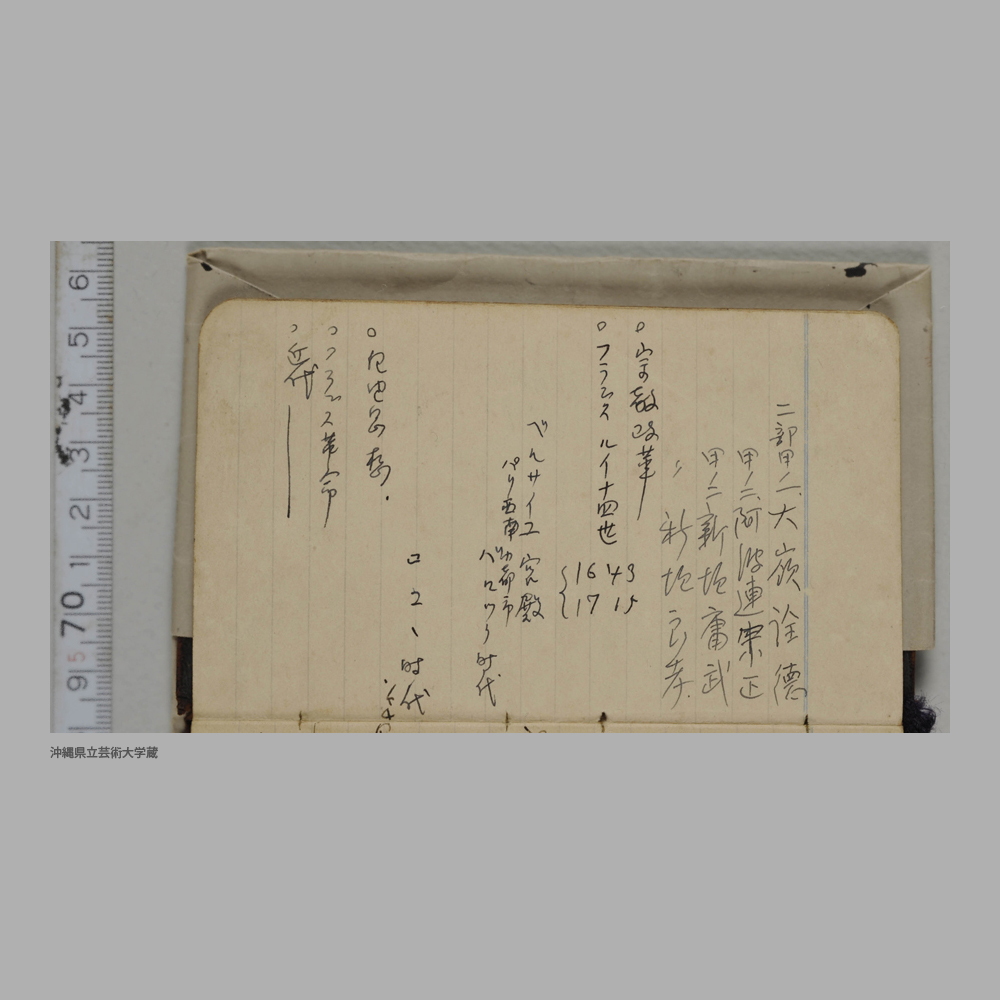 二部甲ノ二、大嶺詮德
甲ノ二、阿波連宗正
甲ノ二 新垣庸武
〃 新垣良孝
○宗敎改革
○フランス ルイ十四世
1643
1715
ベルサイユ宮殿
パリ西南 幼都市
バロック時代
ロココ時代
○フランス革命
○近代
6
5
4
3
2
1
70
9
沖縄県立芸術大学蔵